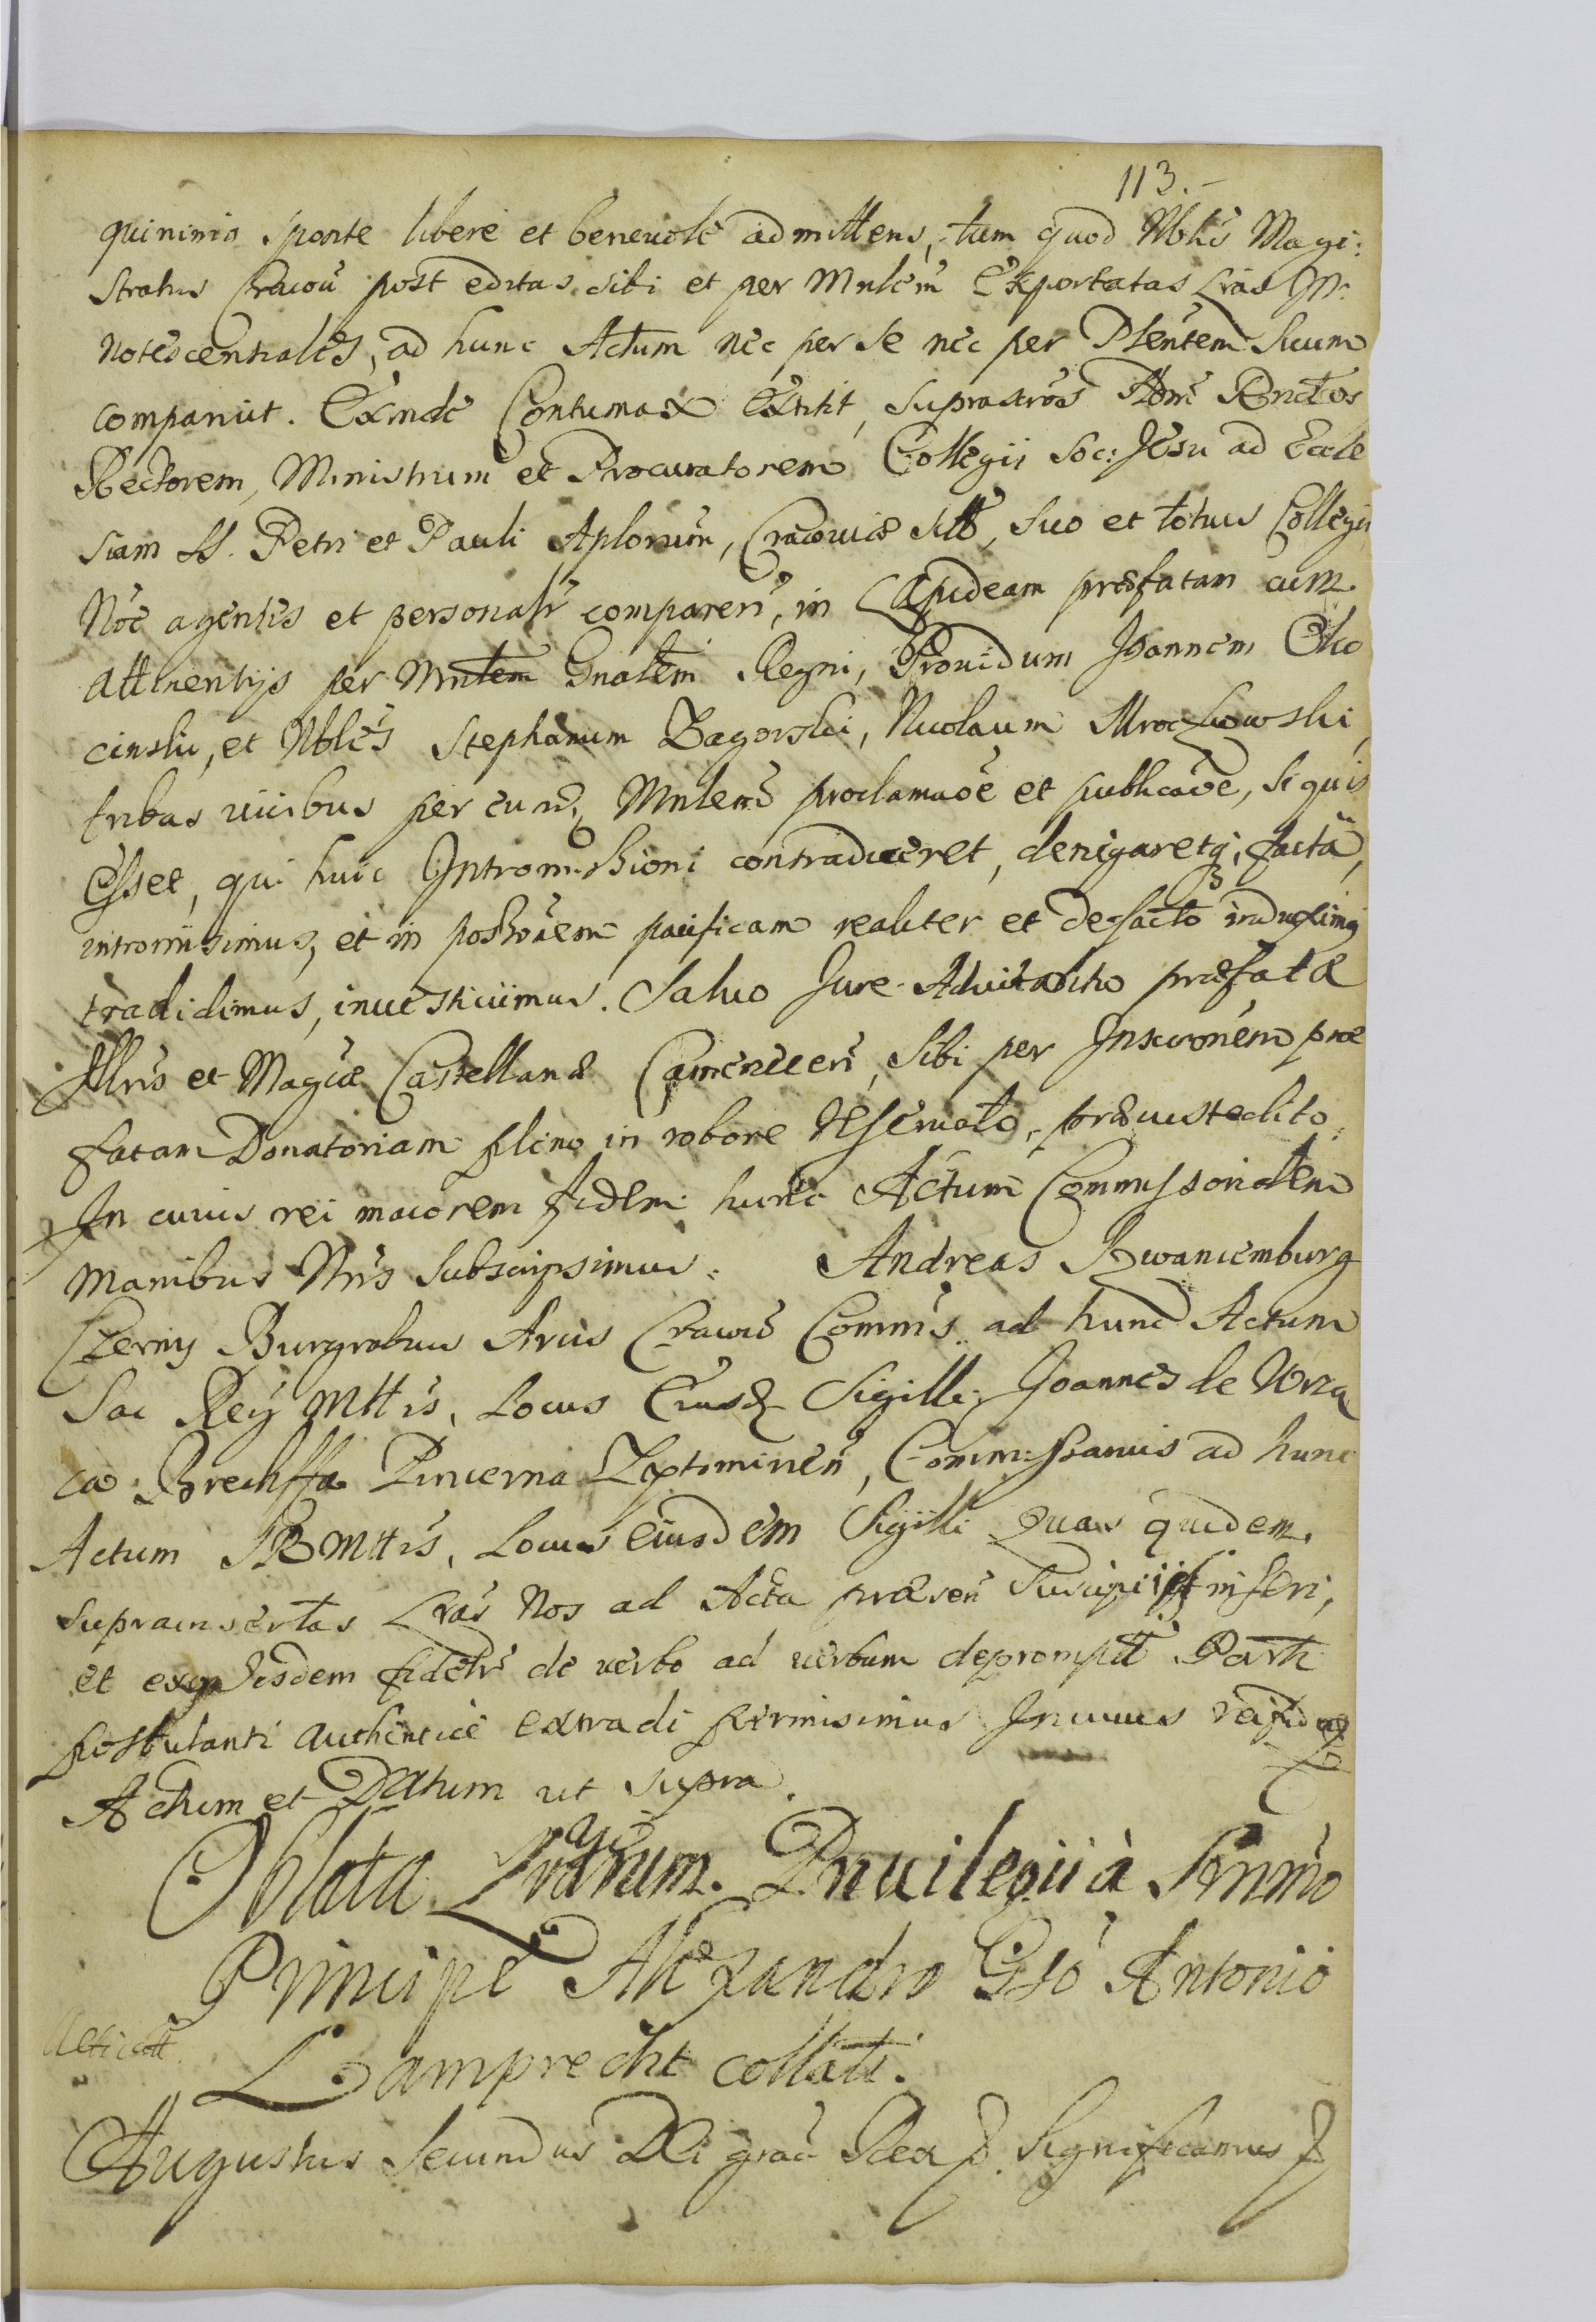 113.-
quinimo sponte libere et beneuole admittens, tum quod Nblis Magi:
stratus Cracou post editas sibi et per Mnlem Exportatas Lras In:
notescentiales, ad hunc Actum nec per se nec per Plentem Suum
comparuit. Exinde Contumax extitit, suprascros Adm Rndos
Rectorem, Ministrum et Procuratorem Collegij Soc: Jesu ad Eccle
siam SS. Petri et Pauli Aplorum, Cracouiæ sitt, suo et totius Collegij
Noe agentes et personalr comparen, in Lapideam præfatam cum
attinentijs per Mnlem Gnalem Regni, Prouidum Joannem
cinski, et Nbles Stephanum Zagorski, Nicolaum Mroczkowski,
tribus uicibus per eund Mnlem proclamaoe et publicaoe, si quis
Esset, qui huic Intromissioni contradiceret, denegaretq, facta,
intromisimus, et in possionem pacificam realiter et de facto induximq
tradidimus, inuestiuimus. Saluo Jure Aduitalitio præfatæ
Illris et Magcæ Castellanæ Camenecen, sibi per Inscronem præ
fatam Donatoriam pleno in robore reseruato, præcustodito.
In cuius rei maiorem fidem hunc Actum Commissorialem
manibus Nris subscripsimus. Andreas Zwaniemburg
Czerny Burgrabius Arcis Cracou Commis. ad hunc Actum
Sac Reg Mttis, Locus Eiusd Sigilli, Joannes de
ca Brechffa Pincerna Zytominen, Commissarius ad hunc
Actum SRMttis, Locus eiusdem Sigilli Quas quidem
suprainsertas Lras Nos ad Acta præsen suscipi inseri,
et ex ijsdem fidelr de verbo ad verbum deprompt Parti
postulanti authentice extradi permisimus In cuius rei fidem
Actum et Datum ut supra.
Oblata Lrarum Priuilegii à Srnmo
Principe Alexandro Gso Antonio
Acticatt.
Lamprecht collati.
Augustus Secundus Dei gra Rex Significamus